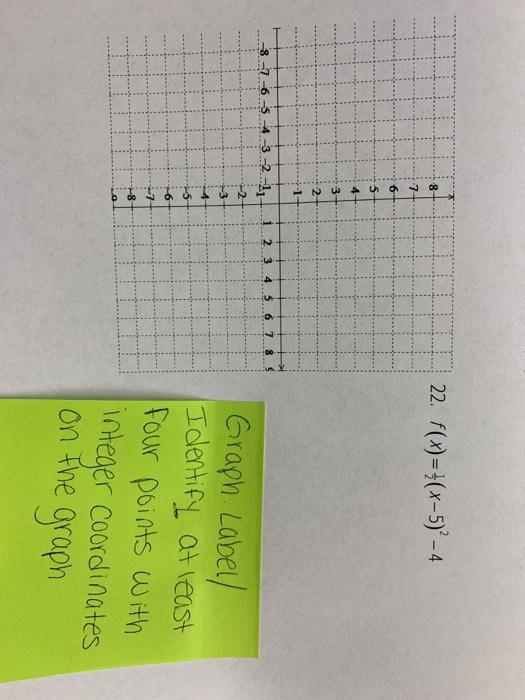 22. f(x)=½(x−5)²−4
8
7
6
5
4
3
2
1
-8 -7 -6 -5 -4 -3 -2 -1
1 2 3 4 5 6 7 8 9
-1
-2
-3
-4
-5
-6
-7
-8
-9
Graph. Label/
Identify at least
four points with
integer coordinates
on the graph